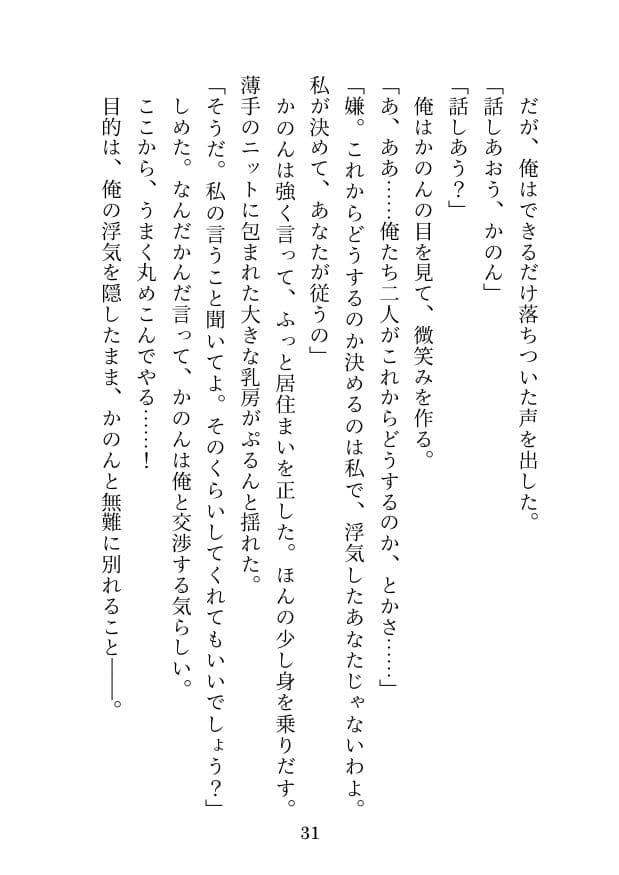 だが、俺はできるだけ落ちついた声を出した。
「話しあおう、かのん」
「話しあう？」
俺はかのんの目を見て、微笑みを作る。
「あ、ああ……俺たち二人がこれからどうするのか、とかさ……」
「嫌。これからどうするのか決めるのは私で、浮気したあなたじゃないわよ。
私が決めて、あなたが従うの」
かのんは強く言って、ふっと居住まいを正した。ほんの少し身を乗りだす。
薄手のニットに包まれた大きな乳房がぷるんと揺れた。
「そうだ。私の言うこと聞いてよ。そのくらいしてくれてもいいでしょう？」
しめた。なんだかんだ言って、かのんは俺と交渉する気らしい。
ここから、うまく丸めこんでやる……！
目的は、俺の浮気を隠したまま、かのんと無難に別れること――。
31